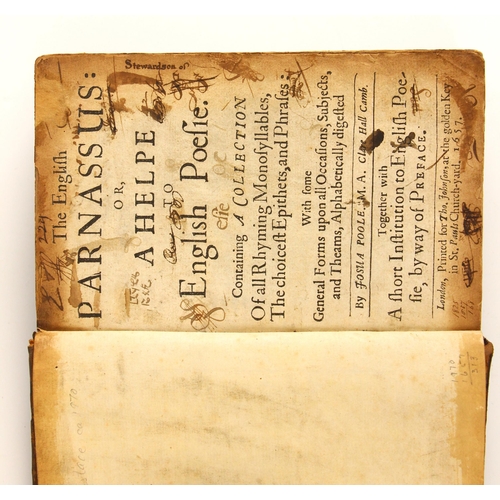 The Engliſh
PARNASSUS:
OR,
A HELPE
TO
Engliſh Poeſie.
Containing A COLLECTION
Of all Rhyming Monoſyllables,
The choiceſt Epithets, and Phraſes:
With ſome
General Forms upon all Occaſions, Subjects,
and Theams, Alphabetically digeſted
By JOSUA POOLE, M. A. Clare Hall Camb.
Together with
A ſhort Inſtitution to Engliſh Poe-
ſie, by way of PREFACE.
London, Printed for Tho. Johnſon, at the golden Key
in St. Pauls Church-yard, 1657.
1970